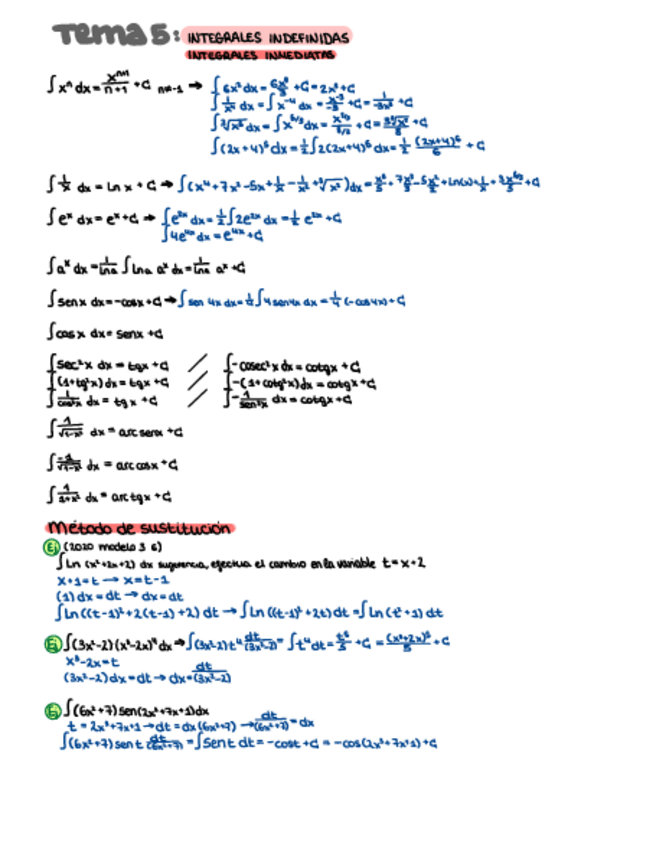 Tema 5: INTEGRALES INDEFINIDAS
INTEGRALES INMEDIATAS
∫xⁿ dx = xⁿ⁺¹/n+1 + C n≠-1 → ∫6x² dx = 6x³/3 + C = 2x³ + C
∫1/x⁴ dx = ∫x⁻⁴ dx = x⁻³/-3 + C = 1/-3x³ + C
∫(2x+4)⁵ dx = 1/2 ∫2(2x+4)⁵ dx = 1/2 (2x+4)⁶/6 + C
∫1/x dx = Ln x + C →
∫eˣ dx = eˣ + C → ∫e²ˣ dx = 1/2 ∫2e²ˣ dx = 1/2 e²ˣ + C
∫4e⁴ˣ dx = e⁴ˣ + C
∫aˣ dx = 1/Lna ∫Lna aˣ dx = 1/Lna aˣ + C
∫senx dx = -cosx + C → ∫sen 4x dx = 1/4 ∫4 sen4x dx = 1/4 (-cos4x) + C
∫cosx dx = senx + C
∫sec²x dx = tgx + C / ∫-cosec²x dx = cotgx + C
∫(1+tg²x) dx = tgx + C / ∫-(1+cotg²x) dx = cotgx + C
∫1/cos²x dx = tgx + C / ∫-1/sen²x dx = cotgx + C
∫1/√1-x² dx = arcsenx + C
∫-1/√1-x² dx = arccosx + C
∫1/1+x² dx = arctgx + C
Método de sustitución
Ej (2020 modelo 3 6)
∫Ln (x²+2x+2) dx sugerencia, efectua el cambio en la variable t = x+2
x+1 = t → x = t-1
(1) dx = dt → dx = dt
∫Ln ((t-1)²+2(t-1)+2) dt → ∫Ln ((t-1)²+2t) dt = ∫Ln (t²+1) dt
Ej ∫(3x²-2)(x³-2x)⁴ dx → ∫(3x²-2) t⁴ dt/(3x²-2) = ∫t⁴ dt = t⁵/5 + C = (x³+2x)⁵/5 + C
x³-2x = t
(3x²-2) dx = dt → dx = dt/(3x²-2)
Ej ∫(6x²+7) sen(2x³+7x+1) dx
t = 2x³+7x+1 → dt = dx (6x²+7) → dt/(6x²+7) = dx
∫(6x²+7) sen t dt/(6x²+7) = ∫sen t dt = -cost + C = -cos(2x³+7x+1) + C